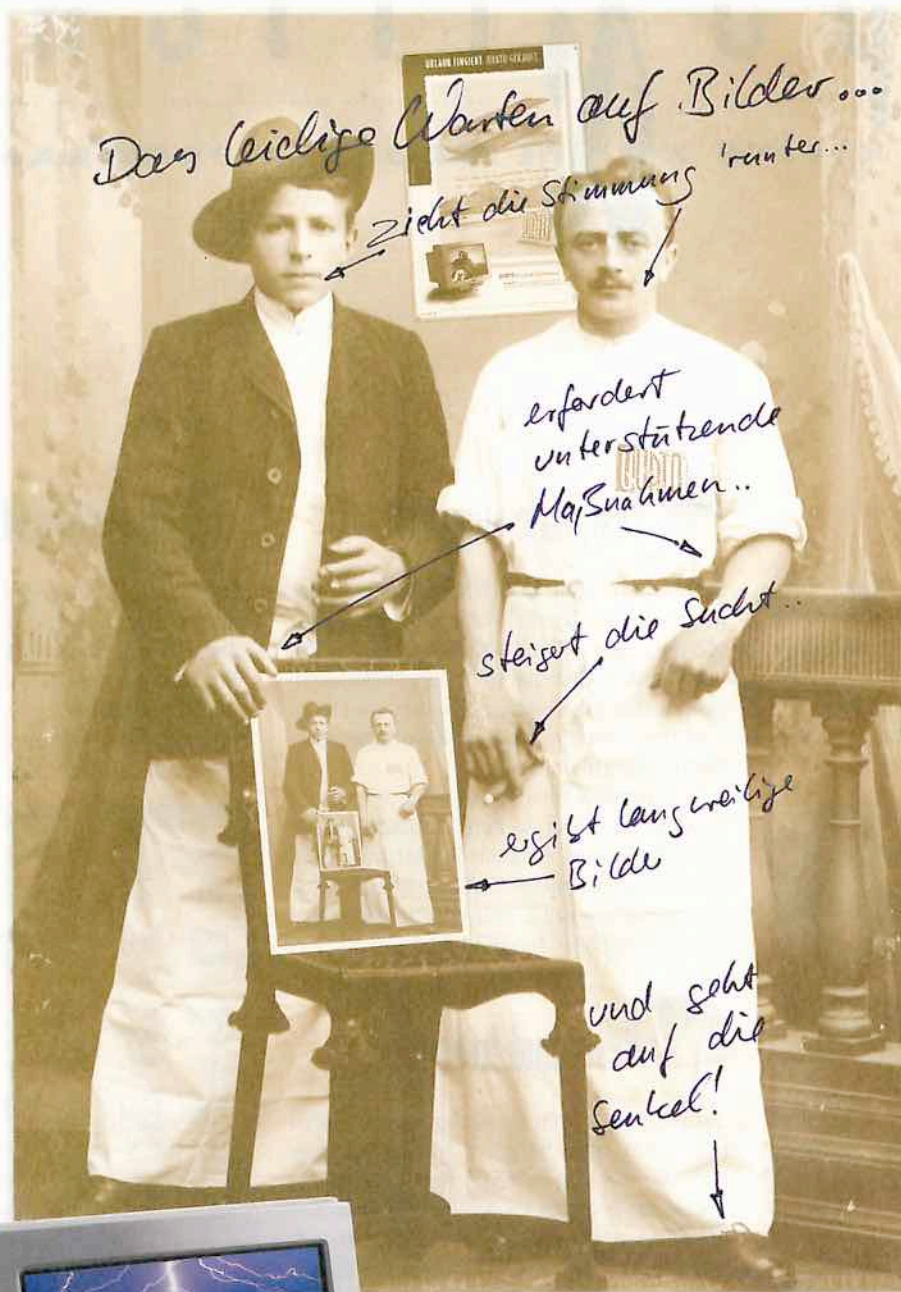 URLAUB FINGIERT
Das leidige Warten auf Bilder...
zieht die Stimmung 'runter...
erfordert
unterstützende
Maßnahmen..
steigert die Sucht..
ergibt langweilige
Bilder
und geht
auf die
Senkel!